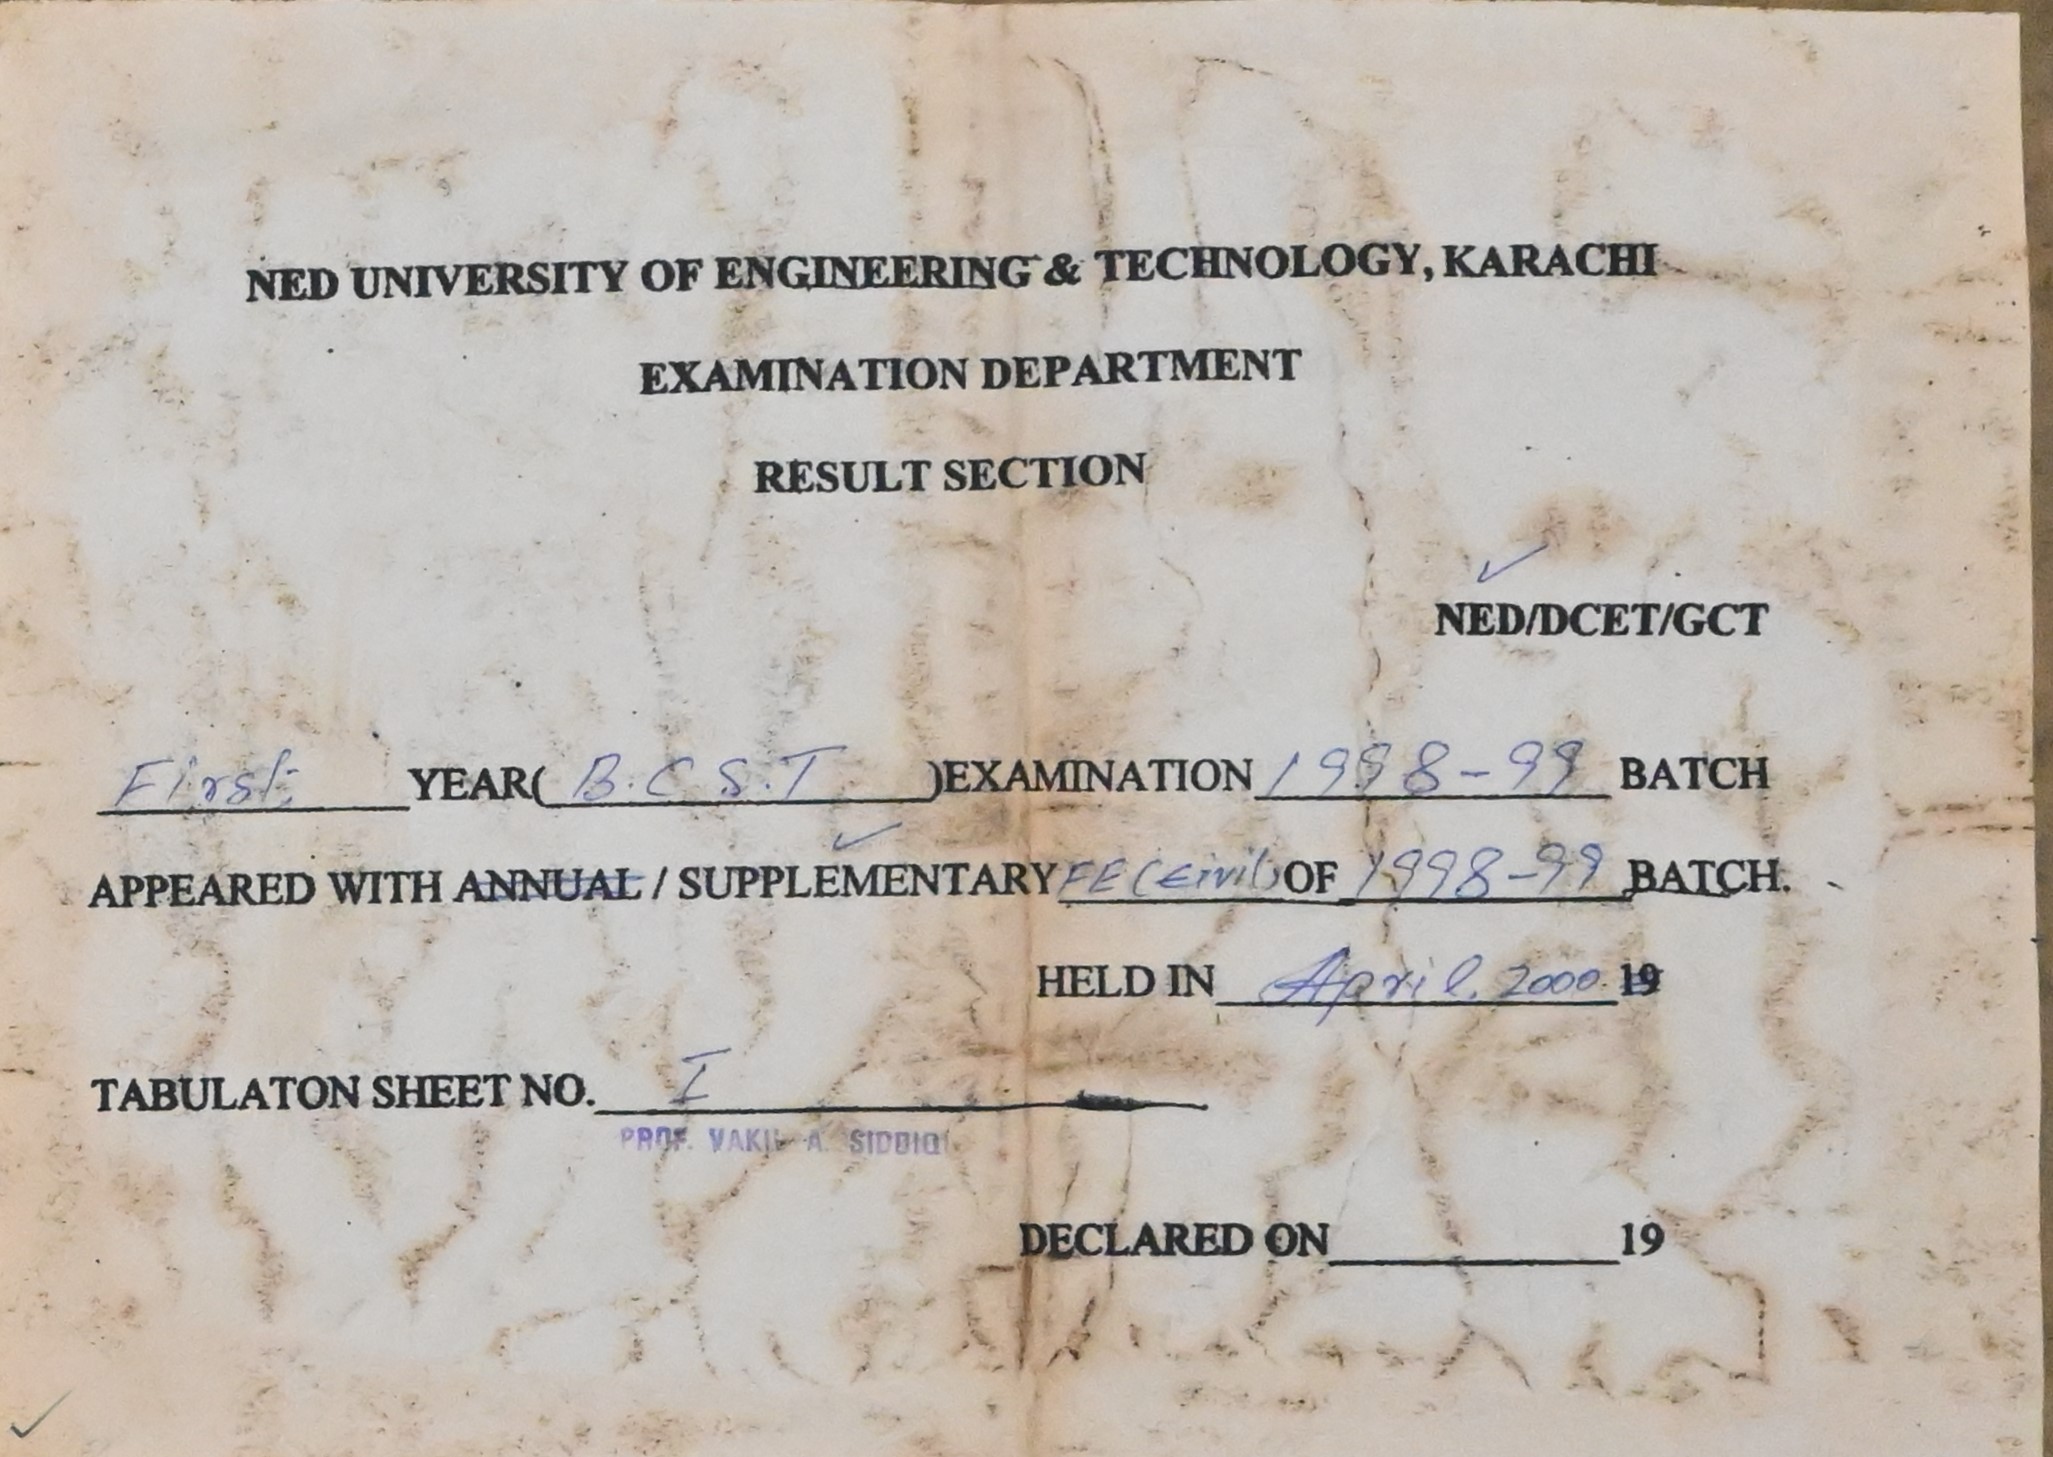 NED UNIVERSITY OF ENGINEERING & TECHNOLOGY, KARACHI
EXAMINATION DEPARTMENT
RESULT SECTION
NED/DCET/GCT
First YEAR( B.C.S.T )EXAMINATION 1998-99 BATCH
APPEARED WITH ANNUAL / SUPPLEMENTARY FE (Civil) OF 1998-99 BATCH.
HELD IN April, 2000. 19
TABULATON SHEET NO. I
PROF. VAKIL A. SIDDIQI
DECLARED ON 19